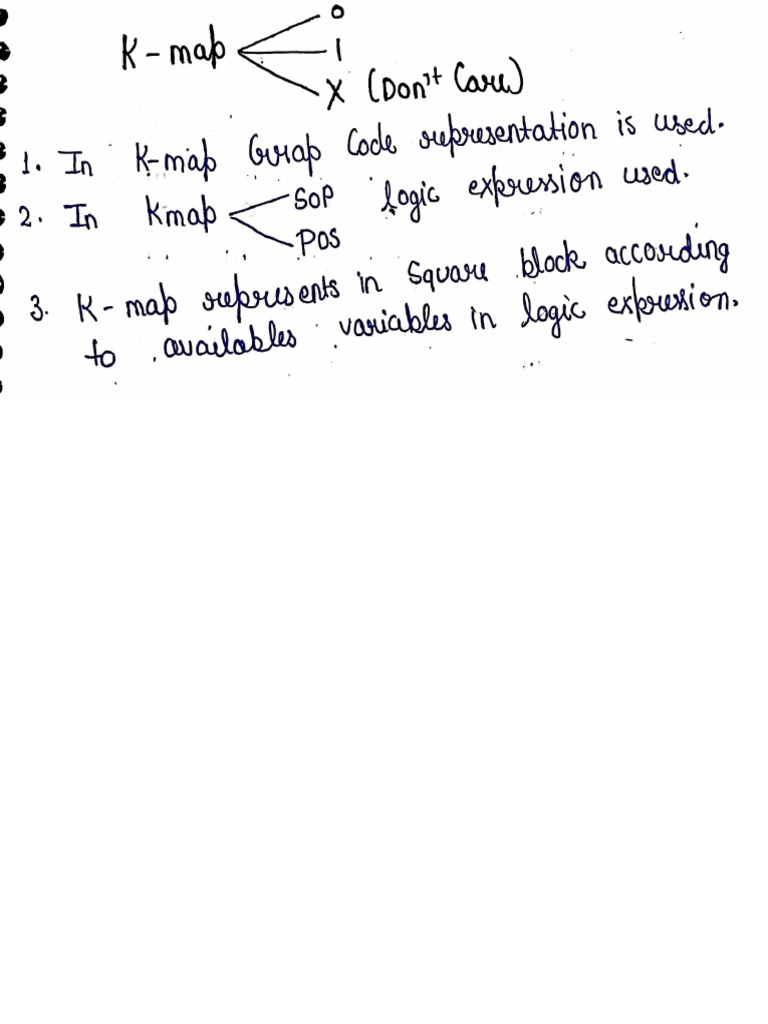 0
K-map 1
X (Don't Care)
1. In K-map Grap Code representation is used.
2. In Kmap SOP logic expression used.
POS
3. K-map represents in Square block according
to availables variables in logic expression.